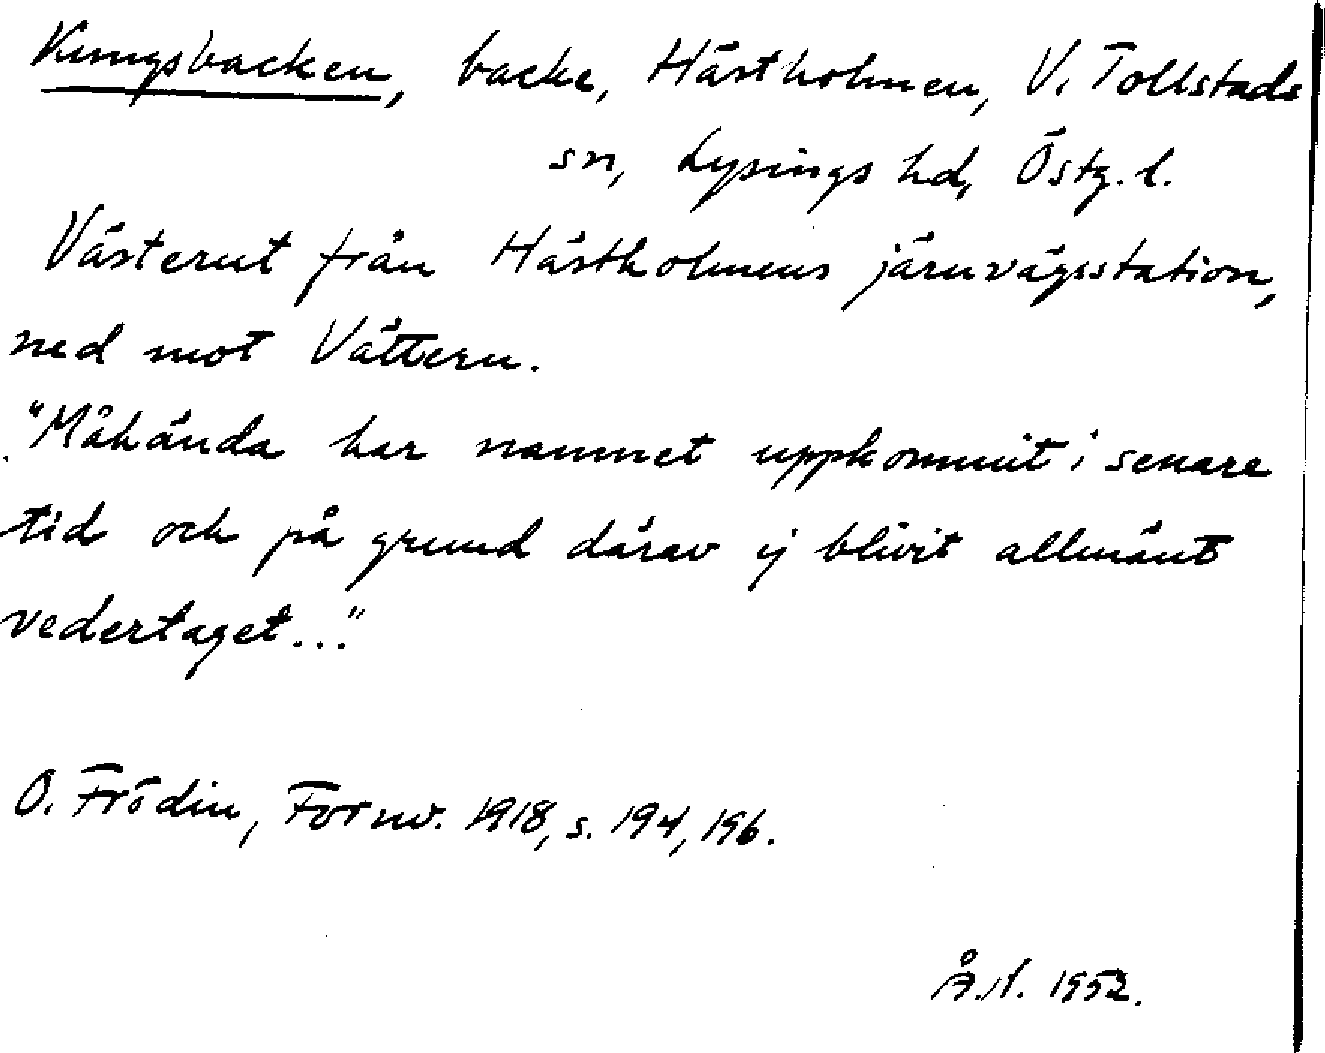 Kungsbacken, backe, Hästholmen, V. Tollstads
sn, Lysings hd, Östg. l.
Västerut från Hästholmens järnvägsstation,
ned mot Vättern.
"Måhända har namnet uppkommit i senare
tid och på grund därav ej blivit allmänt
vedertaget..."
O. Frödin, Fornv. 1918, s. 194, 196.
Å.N. 1952.